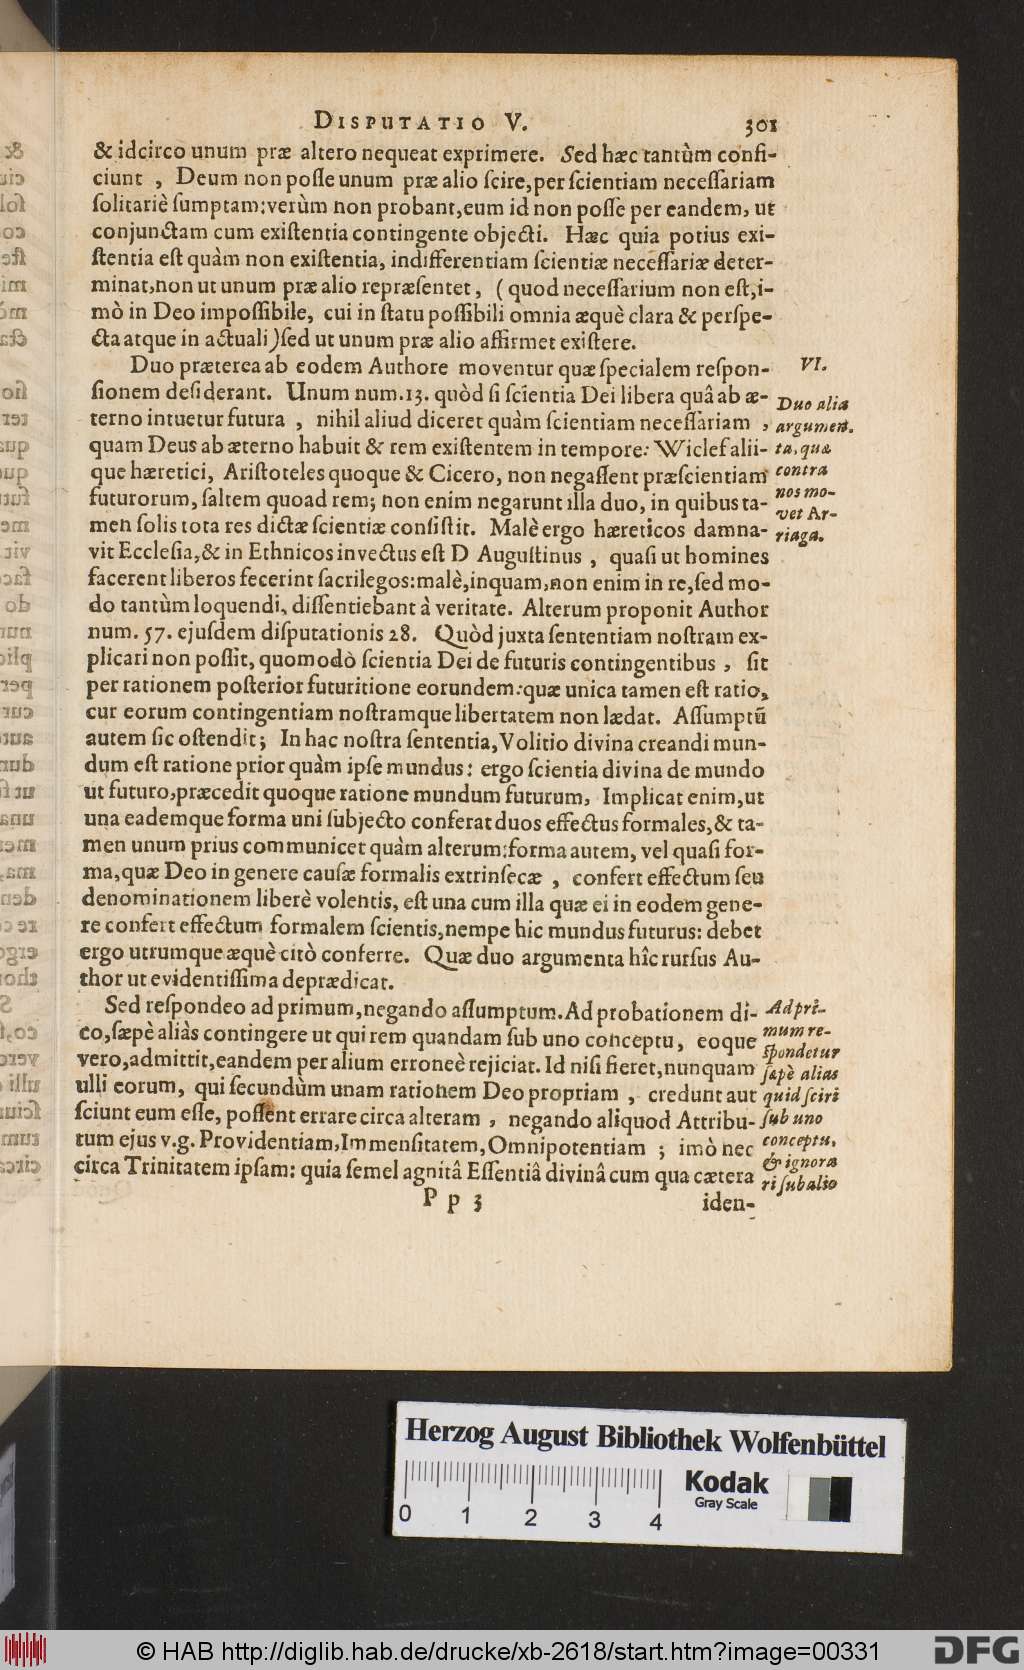 DISPUTATIO V. 301
& idcirco unum præ altero nequeat exprimere. Sed hæc tantùm confi-
ciunt , Deum non posse unum præ alio scire, per scientiam necessariam
solitariè sumptam: verùm non probant, eum id non posse per eandem, ut
conjunctam cum existentia contingente objecti. Hæc quia potius exi-
stentia est quàm non existentia, indifferentiam scientiæ necessariæ deter-
minat, non ut unum præ alio repræsentet, (quod necessarium non est, i-
mò in Deo impossibile, cui in statu possibili omnia æquè clara & perspe-
cta atque in actuali) sed ut unum præ alio affirmet existere.
Duo præterea ab eodem Authore moventur quæ specialem respon-
sionem desiderant. Unum num. 13. quòd si scientia Dei libera quâ ab æ-
terno intuetur futura , nihil aliud diceret quàm scientiam necessariam ,
quam Deus ab æterno habuit & rem existentem in tempore: Wiclef alii-
que hæretici, Aristoteles quoque & Cicero, non negassent præscientiam
futurorum, saltem quoad rem; non enim negarunt illa duo, in quibus ta-
men solis tota res dictæ scientiæ consistit. Malè ergo hæreticos damna-
vit Ecclesia, & in Ethnicos invectus est D Augustinus , quasi ut homines
facerent liberos fecerint sacrilegos: malè, inquam, non enim in re, sed mo-
do tantùm loquendi, dissentiebant à veritate. Alterum proponit Author
num. 57. ejusdem disputationis 28. Quòd juxta sententiam nostram ex-
plicari non possit, quomodò scientia Dei de futuris contingentibus , sit
per rationem posterior futuritione eorundem: quæ unica tamen est ratio,
cur eorum contingentiam nostramque libertatem non lædat. Assumptũ
autem sic ostendit; In hac nostra sententia, Volitio divina creandi mun-
dum est ratione prior quàm ipse mundus: ergo scientia divina de mundo
ut futuro, præcedit quoque ratione mundum futurum, Implicat enim, ut
una eademque forma uni subjecto conferat duos effectus formales, & ta-
men unum prius communicet quàm alterum; forma autem, vel quasi for-
ma, quæ Deo in genere causæ formalis extrinsecæ , confert effectum seu
denominationem liberè volentis, est una cum illa quæ ei in eodem gene-
re confert effectum formalem scientis, nempe hic mundus futurus: debet
ergo utrumque æquè citò conferre. Quæ duo argumenta hîc rursus Au-
thor ut evidentissima deprædicat.
Sed respondeo ad primum, negando assumptum. Ad probationem di-
co, sæpè aliàs contingere ut qui rem quandam sub uno conceptu, eoque
vero, admittit, eandem per alium erroneè rejiciat. Id nisi fieret, nunquam
ulli eorum, qui secundùm unam rationem Deo propriam , credunt aut
sciunt eum esse, possent errare circa alteram , negando aliquod Attribu-
tum ejus v.g. Providentiam, Immensitatem, Omnipotentiam ; imò nec
circa Trinitatem ipsam: quia semel agnitâ Essentiâ divinâ cum qua cætera
P p 3 iden-
VI.
Duo alia
argumen-
ta, quæ
contra
nos mo-
vet Ar-
riaga.
Ad pri-
mum re-
spondetur
sæpè alias
quid sciri
sub uno
conceptu,
& ignora
ri sub alio
Herzog August Bibliothek Wolfenbüttel
Kodak
Gray Scale
0 1 2 3 4
© HAB http://diglib.hab.de/drucke/xb-2618/start.htm?image=00331
DFG